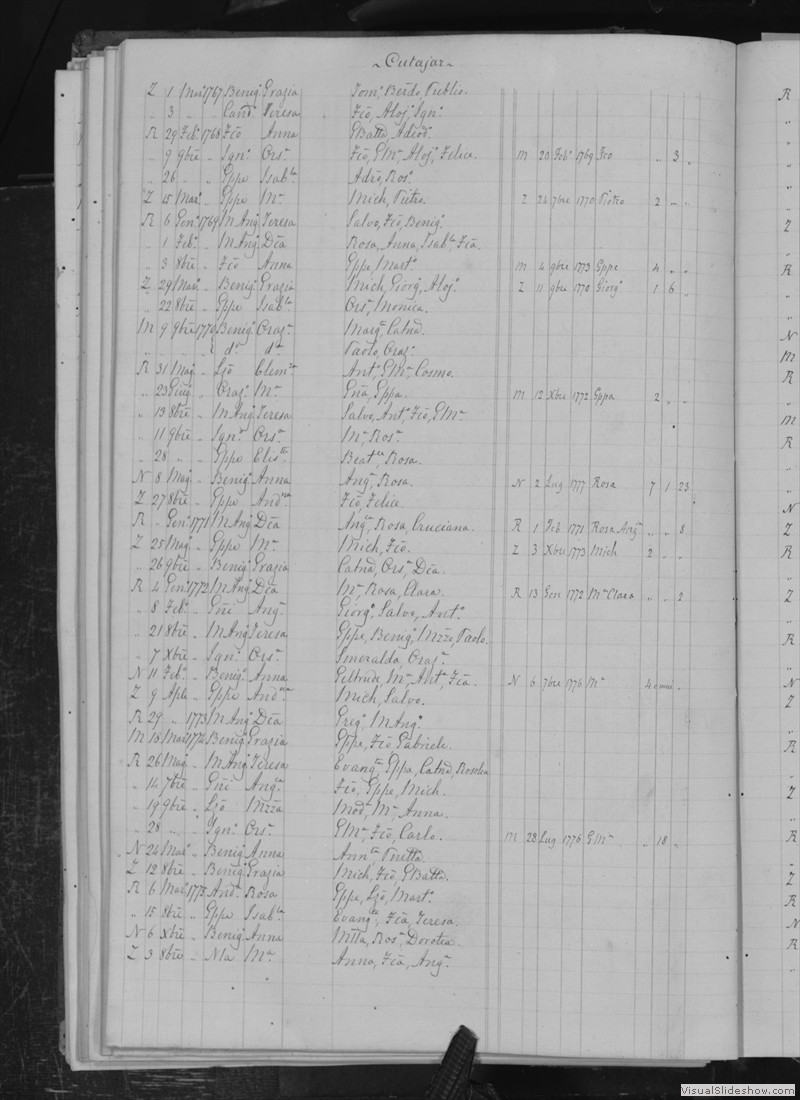 ~Cutajar~
Z 1 Mar: 1767 Benig: Grazia Tom: Berdo Publio.
" 3 " " Cand: Teresa Fcō, Aloj: Ign:
R 29 Feb: 1768 Fcō Anna GBatta, Adeod:
" 9 9bre " Ign: Ors: Fcō, GMa, Aloj: Felice. M 20 Feb: 1769 Fco " 3 "
" 26 " " Gppe Isabla Adrō, Ros:
Z 15 Mar: " Gppe Ma Mich, Pietro. Z 24 7bre 1770 Pietro 2 " "
R 6 Genº 1769 M Ang: Teresa Salvo, Fcō, Benig:
" 1 Feb: " M Ang: Dca Rosa, Anna, Isabla, Fca.
" 3 8bre " Fcō Anna Gppe, Mart: M 4 9bre 1773 Gppe 4 " "
Z 29 Mar: " Benig: Grazia Mich, Giorg: Aloj: Z 11 9bre 1770 Giorgº 1 6 "
" 22 8bre " Gppe Isabla Ors: Monica.
M 9 9bre 1770 Benig: Graz: Marg: Catnā.
" " " " d: d: Paolo, Graz:
R 31 Mag " Ljō Clem: Ant: GMa Cosmo.
" 23 Giug " Graz: Ma Gña, Gppa. M 12 Xbre 1772 Gppa 2 " "
" 13 8bre " M Ang: Teresa Salvo, Ant: Fcō, GMa
" 11 9bre " Ign: Ors: Ma Ros:
" 28 " " Gppe Elis: Beat: Rosa.
N 8 Mag " Benig: Anna Ang: Rosa. N 2 Lug 1777 Rosa 7 1 23
Z 27 8bre " Gppe And: Fcō, Felice
R " Genº 1771 M Ang: Dca Ang: Rosa, Cruciana. R 1 Feb 1771 Rosa Ang: " " 8
Z 25 Mag " Gppe Ma Mich, Fcō. Z 3 Xbre 1773 Mich 2 " "
" 26 9bre " Benig: Grazia Catnā, Ors: Dca.
R 4 Genº 1772 M Ang: Dca Ma, Rosa, Clara. R 13 Gen 1772 Ma Clara " " 2
" 8 Feb: " Gñi Ang: Giorg: Salvo, Ant:
" 21 8bre " M Ang: Teresa Gppe, Benig: Mzzo, Paolo.
" 7 Xbre " Ign: Ors: Smeralda, Graz:
N 11 Feb: " Benig: Anna Geltrude, Ma Ant: Fca. N 6 7bre 1776 Ma
Z 9 Aple " Gppe And: Mich, Salvo.
R 29 " 1773 M Ang: Dca Greg: M Ang:
M 18 Mar 1774 Benig: Grazia Gppe, Fcō Gabriele.
R 26 Mag " M Ang: Teresa Evang: Gppa, Catnā, Roselea
" 14 7bre " Gñi Ang: Fcō, Gppe, Mich.
" 19 9bre " Ljō Mzza Mod: Ma Anna.
" 28 " " Ign: Ors: GMa, Fcō, Carlo. M 28 Lug 1776 GMa " 18 "
N 24 Mar: " Benig: Anna Ann: Pnetta.
Z 12 8bre " Benig: Grazia Mich, Fcō, GBatta.
R 6 Mar: 1775 And: Rosa Gppe, Ljō, Mart:
" 15 8bre " Gppe Isabla Evang: Fca, Teresa.
N 6 Xbre " Benig: Anna Ros: Dorotea.
Z 3 8bre " Nla Ma Anna, Fca, Ang:
VisualSlideshow.com